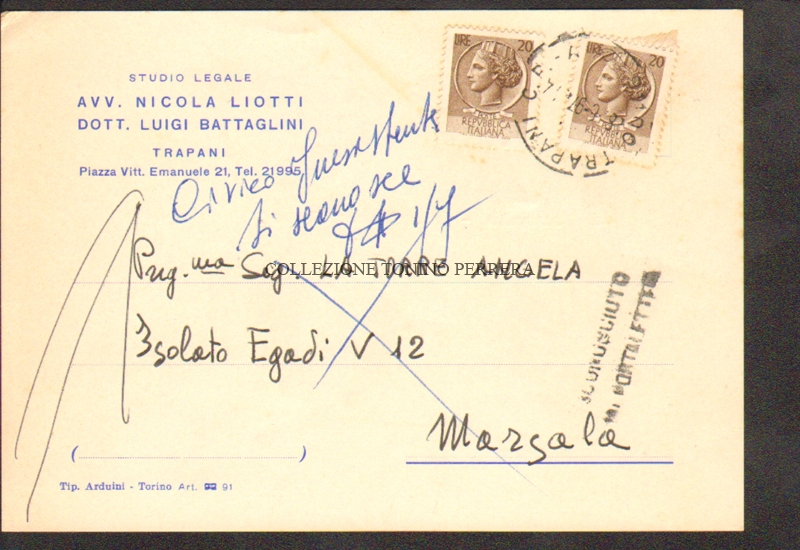 STUDIO LEGALE
AVV. NICOLA LIOTTI
DOTT. LUIGI BATTAGLINI
TRAPANI
Piazza Vitt. Emanuele 21, Tel. 21995
LIRE 20
POSTE
REPVBBLICA
ITALIANA
LIRE 20
POSTE
REPVBBLICA
ITALIANA
TRAPANI
Civico
si sconosce
1/7
Preg.ma Sig. LA TORRE ANGELA
COLLEZIONE TONINO PERRERA
Isolato Egadi V 12
Marsala
SCONOSCIUTO
AI PORTALETTERE
( )
Tip. Arduini - Torino Art. 91